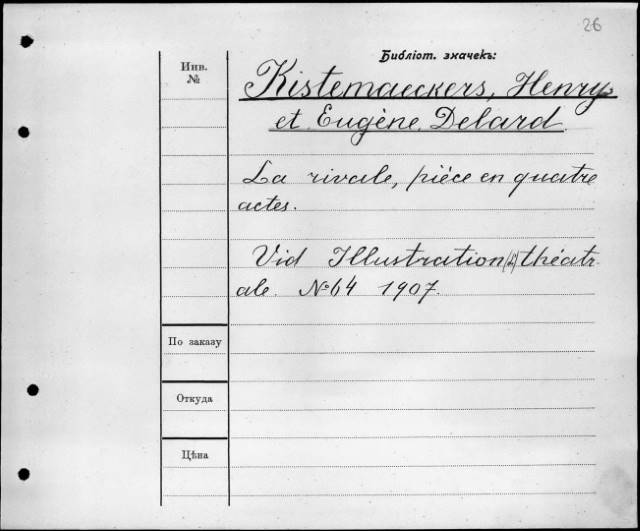 26
Библіот. значекъ:
Инв.
№
Kistemaeckers, Henry
et Eugène Delard.
La rivale, pièce en quatre
actes.
Vid Illustration (L) théatr-
ale. № 64 1907.
По заказу
Откуда
Цѣна